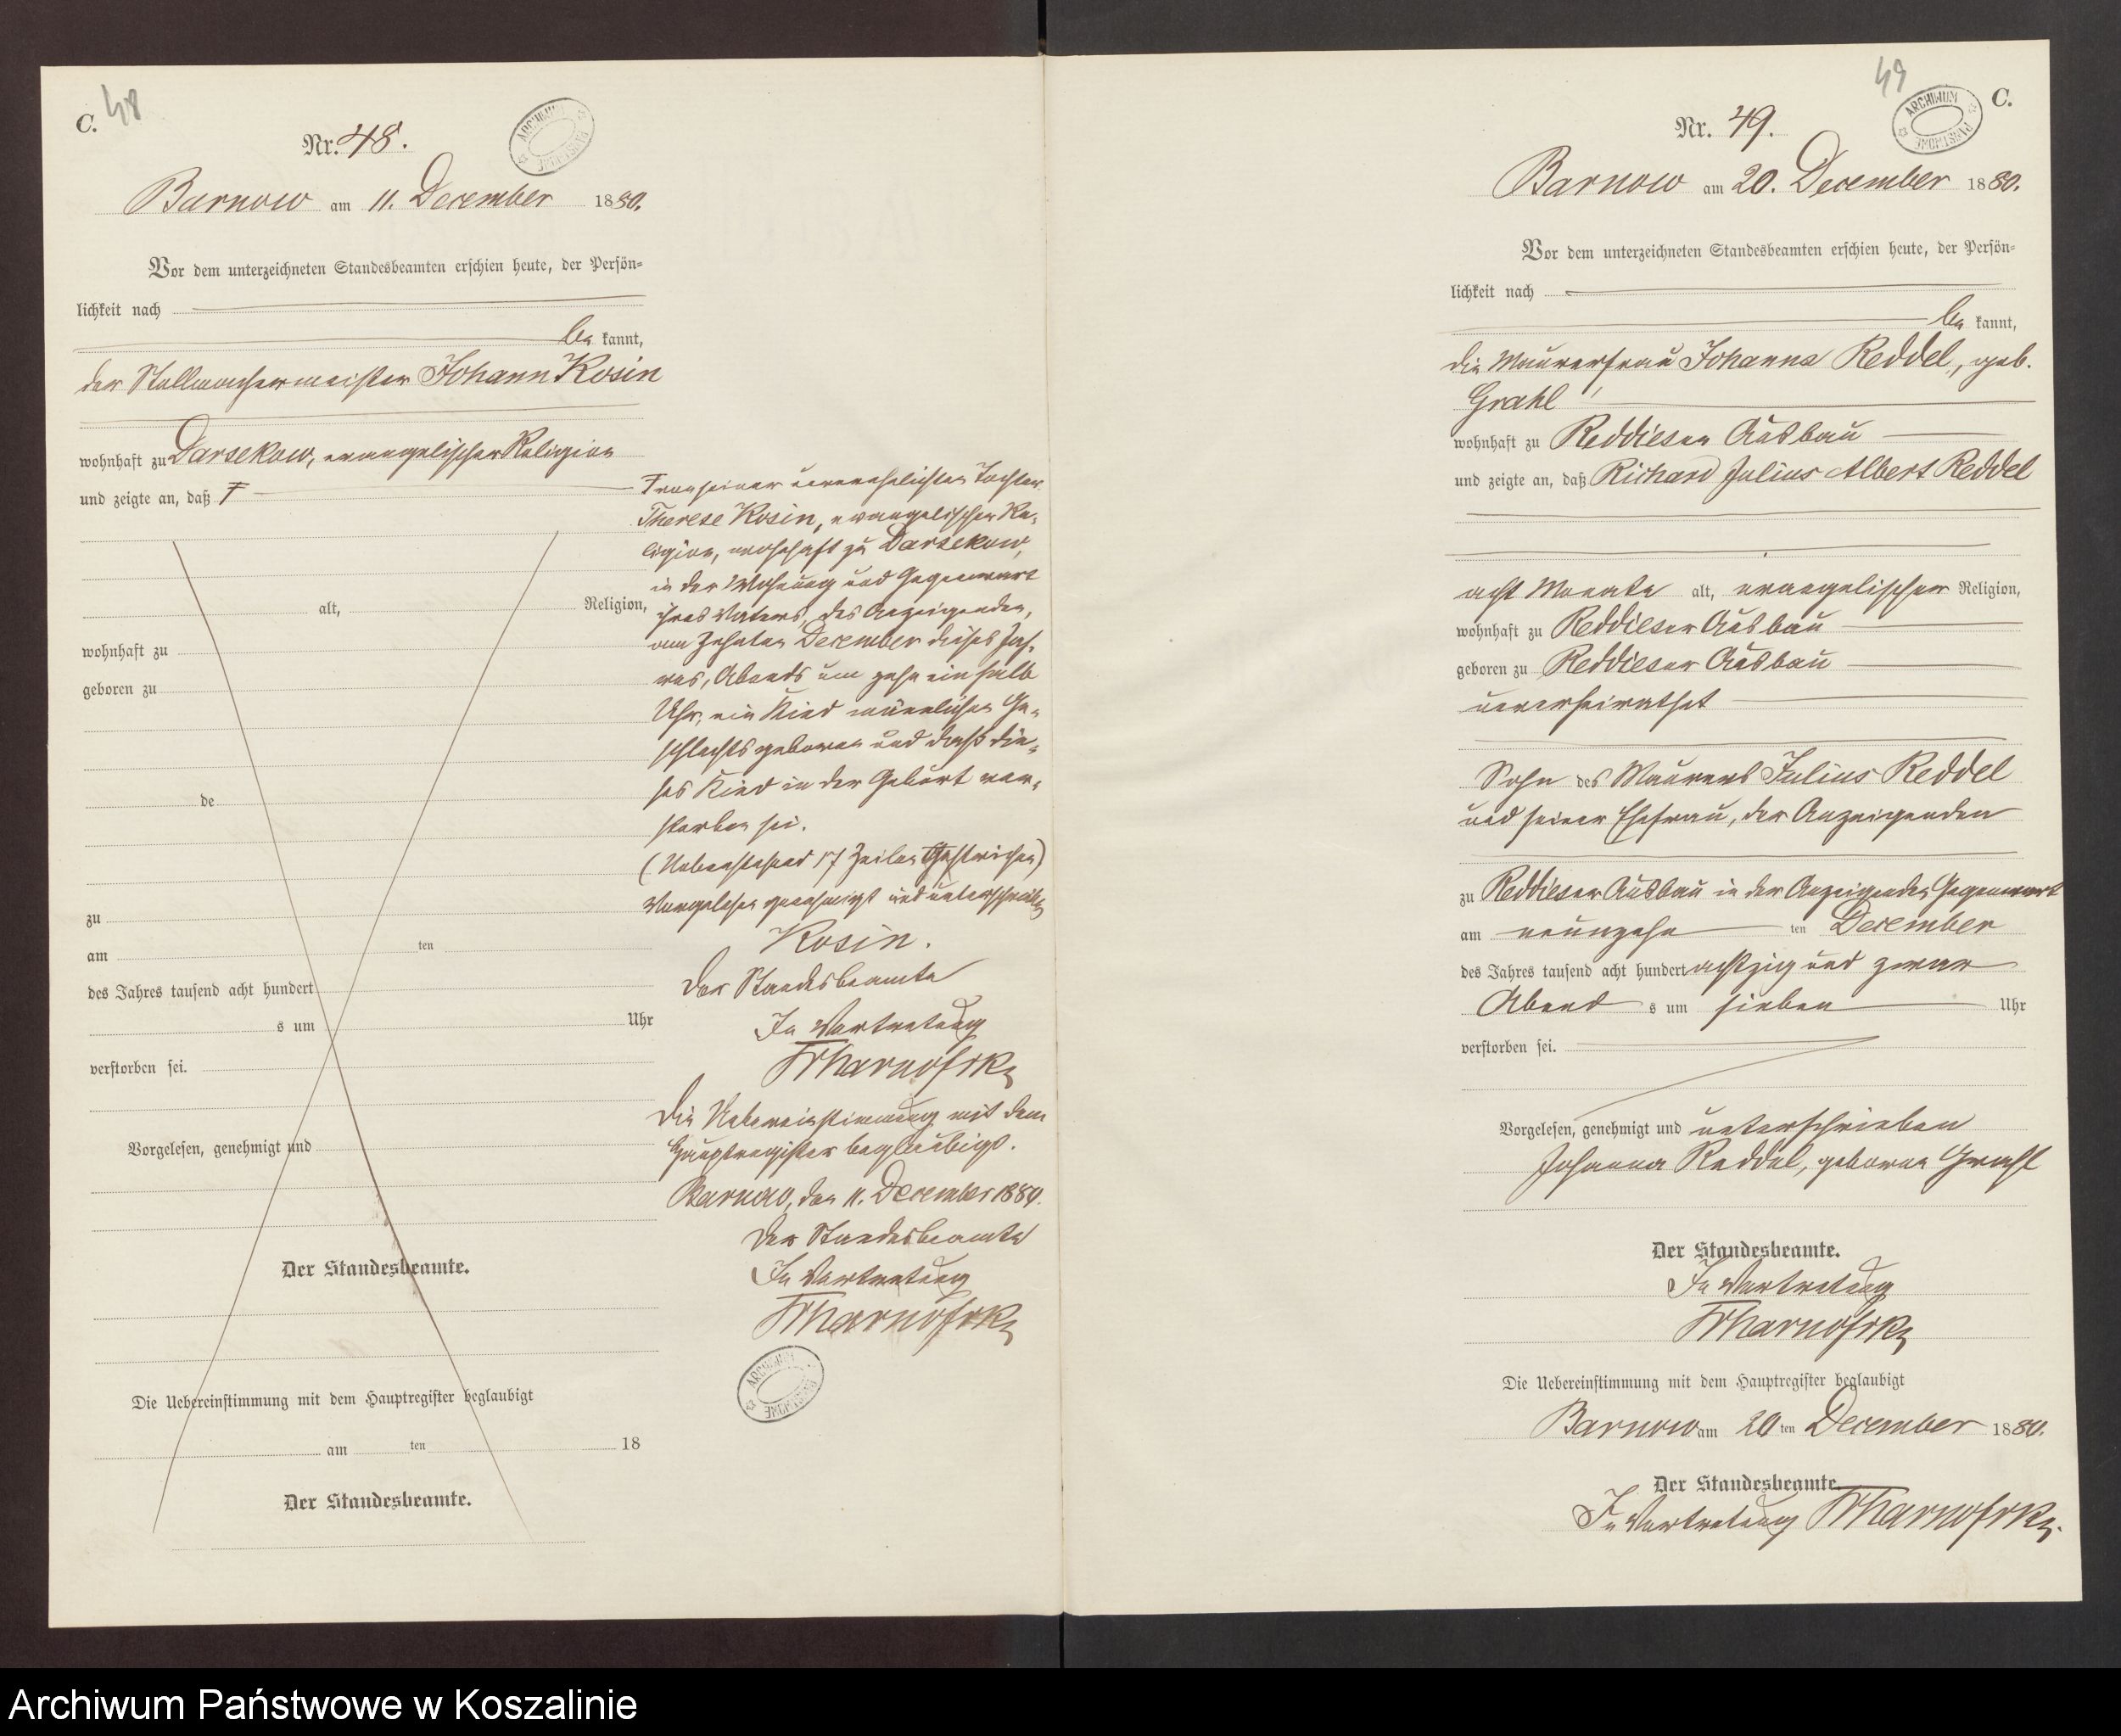 C. 48
ARCHIWUM PAŃSTWOWE
Nr. 48.
Barnow am 11. December 1880.
Vor dem unterzeichneten Standesbeamten erschien heute, der Persön-
lichkeit nach
be kannt,
der Stellmachermeister Johann Kosin
wohnhaft zu Darsekow, evangelischer Religion
und zeigte an, daß
alt, Religion,
wohnhaft zu
geboren zu
de
zu
am ten
des Jahres tausend acht hundert
s um Uhr
verstorben sei.
Vorgelesen, genehmigt und
Der Standesbeamte.
Die Uebereinstimmung mit dem Hauptregister beglaubigt
am ten 18
Der Standesbeamte.
von seiner unverehelichten Tochter
Therese Kosin, evangelischer Re-
ligion, wohnhaft zu Darsekow,
in der Wohnung und Gegenwart
ihres Vaters, des Anzeigenden,
am zehnten December dieses Jah-
res, Abends um zehn einhalb
Uhr, ein Kind männlichen Ge-
schlechts geboren und daß die-
ses Kind in der Geburt ver-
storben sei.
(Nebenstehend 17 Zeilen gestrichen)
Vorgelesen genehmigt und unterschrieben
Kosin.
Der Standesbeamte
In Vertretung
Die Uebereinstimmung mit dem
Hauptregister beglaubigt.
Barnow, den 11. December 1880.
Der Standesbeamte
In Vertretung
ARCHIWUM PAŃSTWOWE
49
C.
ARCHIWUM PAŃSTWOWE
Nr. 49.
Barnow am 20. December 1880.
Vor dem unterzeichneten Standesbeamten erschien heute, der Persön-
lichkeit nach
be kannt,
die Maurerfrau Johanna Reddel, geb.
Grahl
wohnhaft zu Reddieser Ausbau
und zeigte an, daß Richard Julius Albert Reddel
acht Monate alt, evangelischer Religion,
wohnhaft zu Reddieser Ausbau
geboren zu Reddieser Ausbau
unverheirathet
Sohn des Maurers Julius Reddel
und seiner Ehefrau, der Anzeigenden
zu Reddieser Ausbau in der Anzeigenden Gegenwart
am neunzehn ten December
des Jahres tausend acht hundert achtzig und zwar
Abend s um sieben Uhr
verstorben sei.
Vorgelesen, genehmigt und unterschrieben
Johanna Reddel, geborne Grahl
Der Standesbeamte.
In Vertretung
Die Uebereinstimmung mit dem Hauptregister beglaubigt
Barnow am 20 ten December 1880.
Der Standesbeamte.
In Vertretung
Archiwum Państwowe w Koszalinie